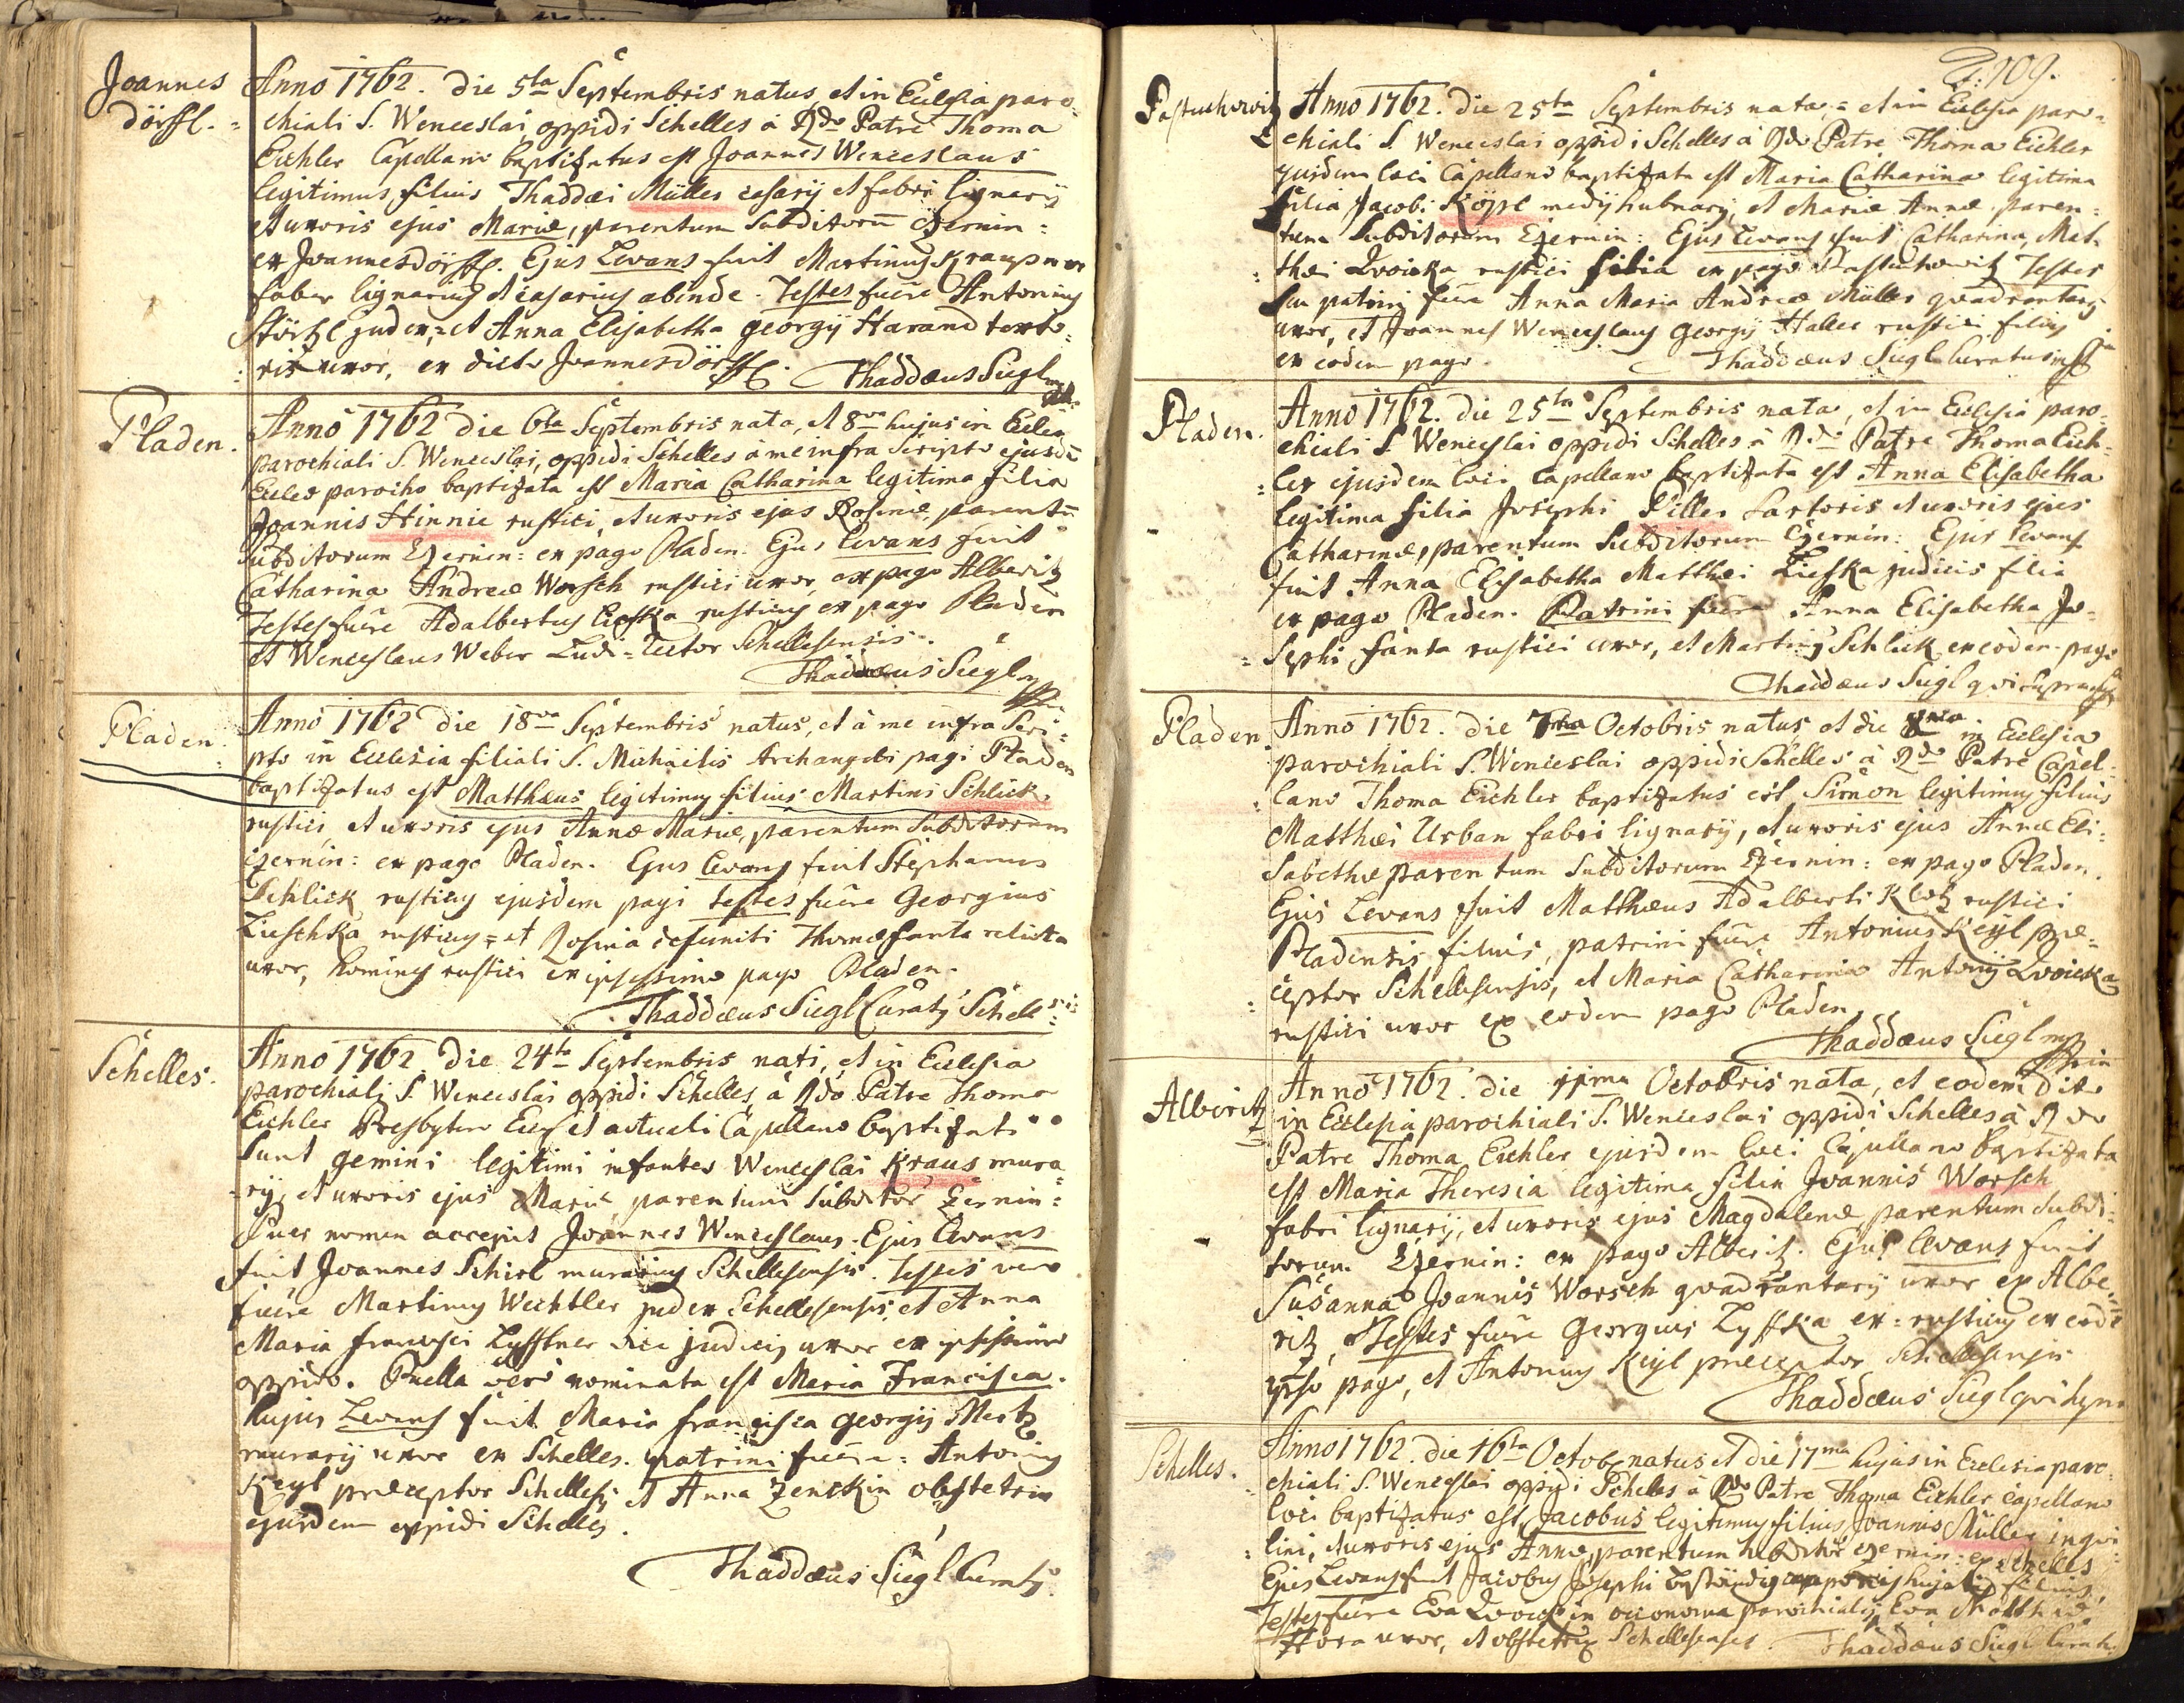 Joannes
dörffl.
Anno 1762. die 5ta Septembris natus, et in Ecclesia paro=
chiali S. Wenceslai, oppidi Schelles à Rdo Patre Thoma
Eichler Capellano baptizatus est Joannes Wenceslaus
legitimus filius Thaddæi Müller casarij et fabri lignarij
et uxoris ejus Mariæ, parentum Subditoru Czernin:
ex Joannesdörffl. Ejus Levans fuit Martinus
faber lignarius et casarius abinde. Testes fuere Antonius
judex, et Anna Elisabetha Georgij texto=
ris uxor, ex dicto Joannesdörffl.
Thaddæus Siegl
Pladen.
Anno 1762 die 6ta Septembris nata, et 8va hujus in Eccles
parochiali S. Wenceslai, oppidi Schelles à me infra Scripto ejusde
Eccles parocho baptizata est Maria Catharina legitima filia
Joannis Hinnie rustici, et uxoris ejus Rosinæ, parentu
Subditorum Czernin: ex pago Pladen. Ejus levans fuit
Catharina Andreæ Worsch rustici uxor, ex pago Alberitz
Testes fuere Adalbertus rusticus ex pago Pladen
et Wenceslaus Weber Ludi=Rector Schellesensis.
Thaddæus Siegl
Pladen.
Anno 1762 die 18va Septembris natus, et à me infra Scri=
pto in Ecclesia filiali S. Michaelis Archangeli pagi Pladen
baptizatus est Matthæus legitimus filius Martini Schlick,
rustici, et uxoris ejus Annæ Mariæ, parentum Subditorum
Czernin: ex pago Pladen. Ejus levans fuit Stephanus
Schlick rusticus ejusdem pagi testes fuere Georgius
Lieschka rusticus, et Rosina defuncti Thomæ Fanta relicta
uxor, homines rustici ex ipsissimo pago Pladen.
Thaddæus Siegl Curatus Schell
Schelles.
Anno 1762. die 24ta Septembris nati, et in Ecclesia
parochiali S. Wenceslai oppidi Schelles à Rdo Patre Thoma
Eichler Presbytero et actuali Capellano baptizati
Sunt gemini legitimi infantes Wenceslai Kraus mura=
rij, et uxoris ejus Mariæ, parentum Subditor Czernin:
Puer nomen accepit Joannes Wenceslaus. Ejus levans
fuit Joannes Schirl murarius Schellesensis. Testes vero
fuere Martinus Wechtler judex Schellesensis, et Anna
Maria Francisci judicis uxor ex ipsissimo
oppido. Puella vero nominata est Maria Francisca.
hujus Levans fuit Maria Francisca Georgij Mertz
murarij uxor ex Schelles. patrini fuere: Antonius
Keyl præceptor Schelles, et Anna Zenckin obstetrix
ejusdem oppidi Schelles.
Thaddæus Siegl Curatus
F: 109.
Pastuchowitz
Anno 1762. die 25ta Septembris nata, et in Ecclesia paro=
chiali S. Wenceslai oppidi Schelles à Rdo Patre Thoma Eichler
ejusdem loci Capellano baptizata est Maria Catharina legitima
filia Jacobi Köpl medij hubnarij, et Mariæ Annæ paren=
tum Subditorum Czernin: Ejus levans fuit Catharina, Mat=
thæi Zwoicka rustici filia ex pago Pastuchowitz Testes
seu patrini fuere Anna Maria Andreæ Müller quadrantarij
uxor, et Joannes Wenceslaus Georgij Haller rustici filius
ex eodem pago.
Thaddæus Siegl Curatus
Pladen.
Anno 1762. die 25ta Septembris nata, et in Ecclesia paro=
chiali S. Wenceslai oppidi Schelles à Rdo Patre Thoma Eich=
ler ejusdem loci Capellano baptizata est Anna Elisabetha
legitima filia Josephi Piller Sartoris et uxoris ejus
Catharinæ, parentum Subditorum Czernin: Ejus levans
fuit Anna Elisabetha Matthæi Lieska judicis filia
ex pago Pladen. Patrini fuere Anna Elisabetha Jo=
sephi Fanta rustici uxor, et Martinus Schlick ex eodem pago
Thaddæus Siegl qui supra
Pladen.
Anno 1762. die 7ma Octobris natus, et die in Ecclesia
parochiali S. Wenceslai oppidi Schelles à Rdo Patre Capel=
lano Thoma Eichler baptizatus est Simon legitimus filius
Matthæi Urban fabri lignarij, et uxoris ejus Annæ Eli=
sabethæ parentum Subditorum Czernin: ex pago Pladen.
Ejus Levans fuit Matthæus Adalberti Klotz rustici
Pladensis filius, patrini fuere Antonius Keyl præ=
ceptor Schellesensis, et Maria Catharina Antonij Zwoicka
rustici uxor ex eodem pago Pladen
Thaddæus Siegl
Alberitz
Anno 1762. die 11ma Octobris nata, et eodem die
in Ecclesia parochiali S. Wenceslai oppidi Schelles à Rdo
Patre Thoma Eichler ejusdem loci Capellano baptizata
est Maria Theresia legitima filia Joannis Worsch
fabri lignarij, et uxoris ejus Magdalenæ, parentum subdi=
torum Czernin: ex pago Alberitz. Ejus levans fuit
Susanna Joannis Worsch quadrantarij uxor ex Albe=
ritz, Testes fuere Georgius Lysska ex=rusticus ex eode
ipso pago, et Antonius Keyl præceptor Schellesensis
Thaddæus Siegl
Schelles.
Anno 1762. die 16ta Octob. natus et die 17ma hujus in Ecclesia paro=
chiali S. Wenceslai oppidi Schelles à Rdo Patre Thoma Eichler Capellano
loci baptizatus est Jacobus legitimus filius Joannis Müller inqui=
lini, et uxoris ejus Annæ, parentum subditor Czernin: ex Schelles
Ejus Levans fuit Jacobus Josephi hujatis filius
Testes fuere Eva in oeconoma parochialis, Eva Matthiæ
Hora uxor, et obstetrix Schellesensis. Thaddæus Siegl Curat.